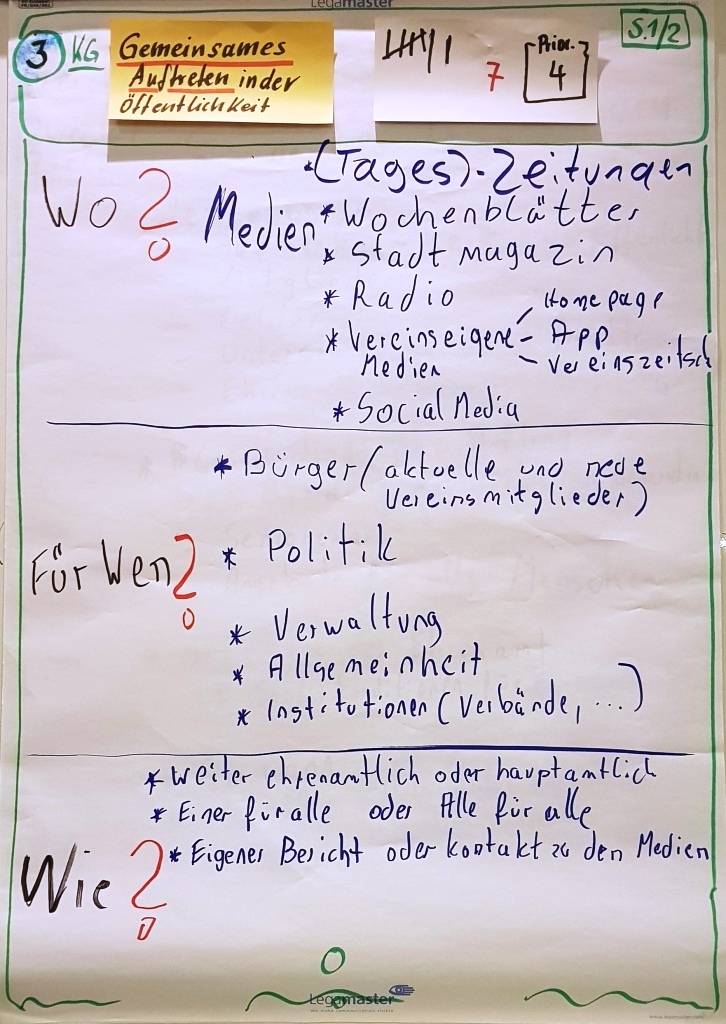 Legamaster
3 KG
Gemeinsames
Auftreten in der
Öffentlichkeit
7
Prior.
4
S.1/2
Wo?
Medien
* (Tages)-Zeitungen
* Wochenblätter
* Stadtmagazin
* Radio
* Vereinseigene Medien
- Homepage
- App
- Vereinszeitsch
* Social Media
Für Wen?
* Bürger (aktuelle und neue
Vereinsmitglieder)
* Politik
* Verwaltung
* Allgemeinheit
* Institutionen (Verbände, ...)
Wie?
* weiter ehrenamtlich oder hauptamtlich
* Einer für alle oder Alle für alle
* Eigener Bericht oder Kontakt zu den Medien
Legamaster